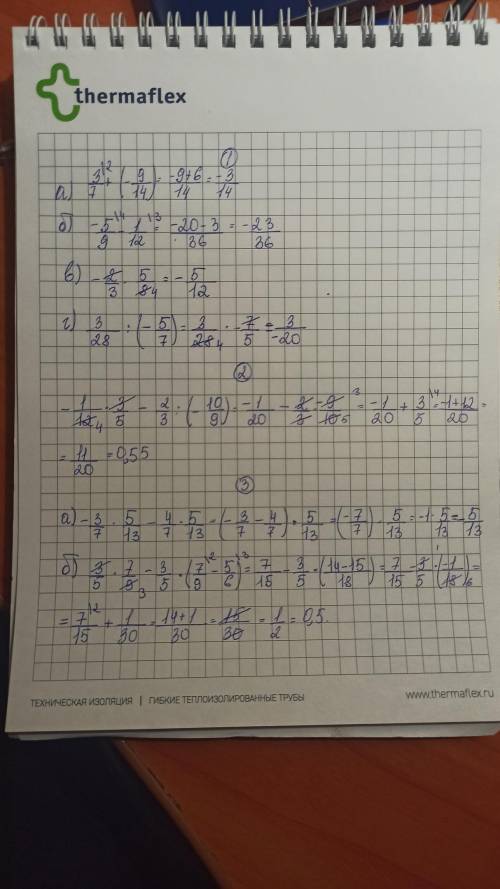 thermaflex
①
а) 3/7\2 + (-9/14) = -9+6/14 = -3/14
б) -5/9\4 - 1/12\3 = -20-3/36 = -23/36
в) -2/3 · 5/8 4 = -5/12
г) 3/28 : (-5/7) = 3/28 4 · -7/5 = 3/-20
②
-1/12 4 · 3/5 - 2/3 : (-10/9) = -1/20 - 2/3 · -9/10 5 3 = -1/20 + 3/5\4 = -1+12/20 =
= 11/20 = 0,55
③
а) -3/7 · 5/13 - 4/7 · 5/13 = (-3/7 - 4/7) · 5/13 = (-7/7) · 5/13 = -1 · 5/13 = -5/13
б) 3/5 · 7/9 3 - 3/5 · (7/9\2 - 5/6\3) = 7/15 - 3/5 · (14-15/18) = 7/15 - 3/5 1 · (-1/18) 6 =
= 7/15\2 + 1/30 = 14+1/30 = 15/30 = 1/2 = 0,5.
ТЕХНИЧЕСКАЯ ИЗОЛЯЦИЯ | ГИБКИЕ ТЕПЛОИЗОЛИРОВАННЫЕ ТРУБЫ www.thermaflex.ru